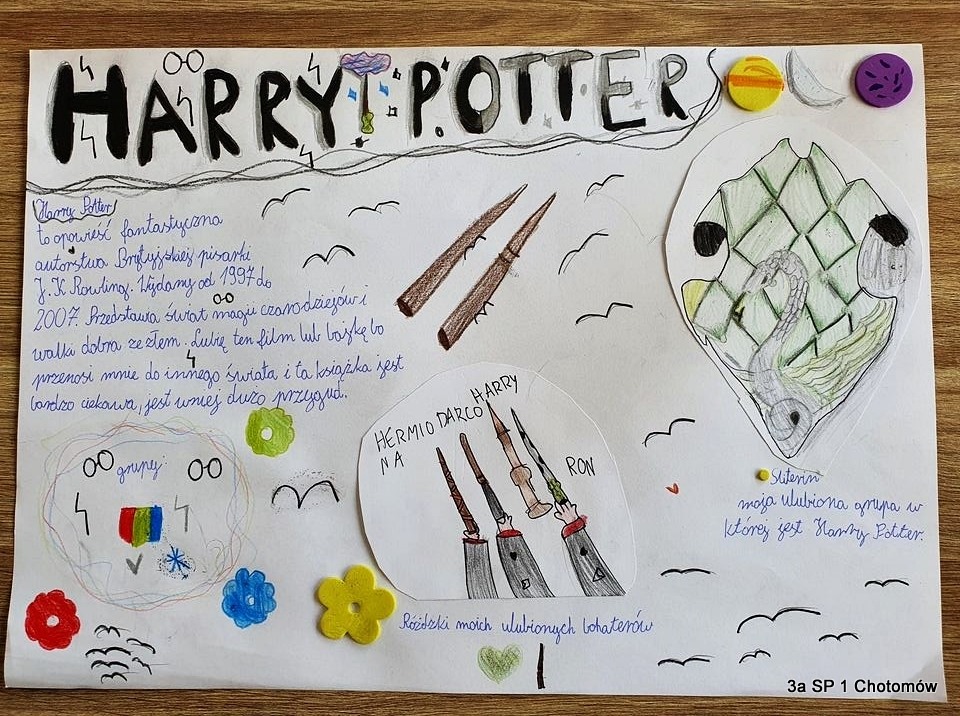 HARRY POTTER
Harry Potter
to opowieść fantastyczna
autorstwa Brytyjskiej pisarki
J.K Rowling. Wydany od 1997 do
2007. Przedstawia świat magii czarodziejów i
walki dobra ze złem. Lubię ten film lub bajkę bo
przenosi mnie do innego świata i ta książka jest
bardzo ciekawa, jest wniej dużo przygud.
grupy:
HERMIO
NA
DARCO
HARRY
RON
Różdżki moich ulubionych bohaterów
Sliterin
moja ulubiona grupa w
której jest Harry Potter.
3a SP 1 Chotomów